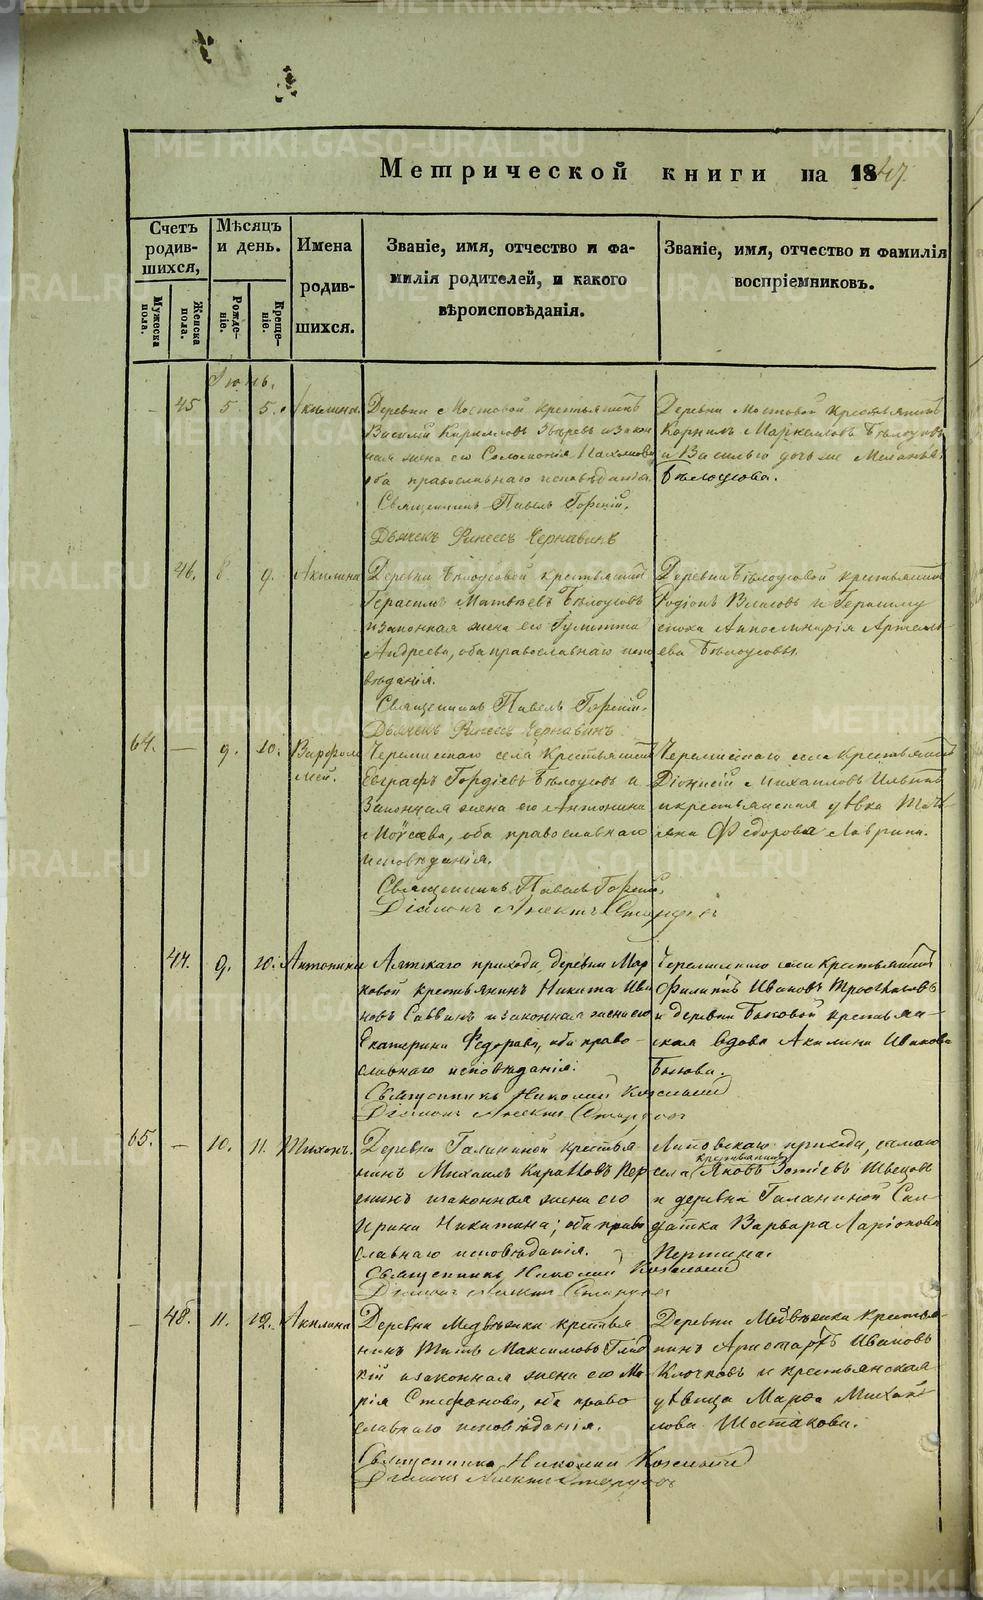 METRIKI.GASO-URAL.RU
Метрической книги на 1847.
Счетъ родив-шихся,
Мѣсяцъ и день.
Имена родив-шихся.
Званіе, имя, отчество и фа-
милія родителей, и какого
вѣроисповѣданія.
Званіе, имя, отчество и фамилія
воспріемниковъ.
Мужеска пола.
Женска пола.
Рожде-ніе.
Креще-ніе.
Іюнь.
45 5. 5. Акилина
Деревни Мостовой крестьянинъ
Василій Кириловъ и закон
ная жена его Соломонія
оба православнаго исповѣданія.
Священникъ Павелъ Горскій.
Дьячекъ Чернавинъ
Деревни Мостовой крестьянинъ
Корнилъ Маркеловъ Бѣлоусовъ
и Василья дочь же
Бѣлоусова.
46. 8 9. Акилина
Деревни Бѣлоусовой крестьянинъ
Герасимъ Матвѣевъ Бѣлоусовъ
и законная жена его Іулитта
Андреева, оба православнаго испо
вѣданія.
Священникъ Павелъ Горскій.
Дьячекъ Чернавинъ
Деревни Бѣлоусовой крестьянинъ
Родіонъ Власовъ и Герасиму
Аполинарія Артемь-
ева Бѣлоусовы.
64. — 9. 10. Варфоло
мей.
Черемисскаго села крестьянинъ
Евграфъ Гордѣевъ Бѣлоусовъ и
законная жена его Антонина
Моѵсеева, оба православнаго
исповѣданія.
Священникъ Павелъ Горскій.
Діаконъ
Черемисскаго села крестьянинъ
Діонисій Михайловъ Ильинъ
и крестьянская дѣвка Тать-
яна Ѳедорова Лаврина.
47. 9. 10. Антонина
Аятскаго прихода, деревни Мар
ковой крестьянинъ Никита Ива
новъ Саввинъ и законная жена его
Екатерина Ѳедорова, оба право-
славнаго исповѣданія.
Священникъ Николай
Діаконъ
Черемисскаго села крестьянинъ
Филиппъ Ивановъ
и деревни Быковой крестьян-
ская вдова Акилина Иванова
Быкова.
65. — 10. 11. Тихонъ.
Деревни Галаниной крестья
нинъ Михаилъ Карповъ Пер
шинъ и законная жена его
Ирина Никитина; оба право
славнаго исповѣданія.
Священникъ Николай
Діаконъ
Липовскаго прихода, самаго
села крестьянинъ Яковъ Зотіевъ Швецовъ
и деревни Галаниной Сол-
датка Варвара Ларіонова
Першина.
— 48. 11. 12. Акилина
Деревни Медвѣдки крестья
нинъ Титъ Максимовъ Глад
кій и законная жена его Ма
рія Стефанова, оба право
славнаго исповѣданія.
Священникъ Николай
Діаконъ
Деревни Медвѣдки крестья-
нинъ Аристархъ Ивановъ
Клочковъ и крестьянская
дѣвица Марѳа Михай
лова Шестакова.